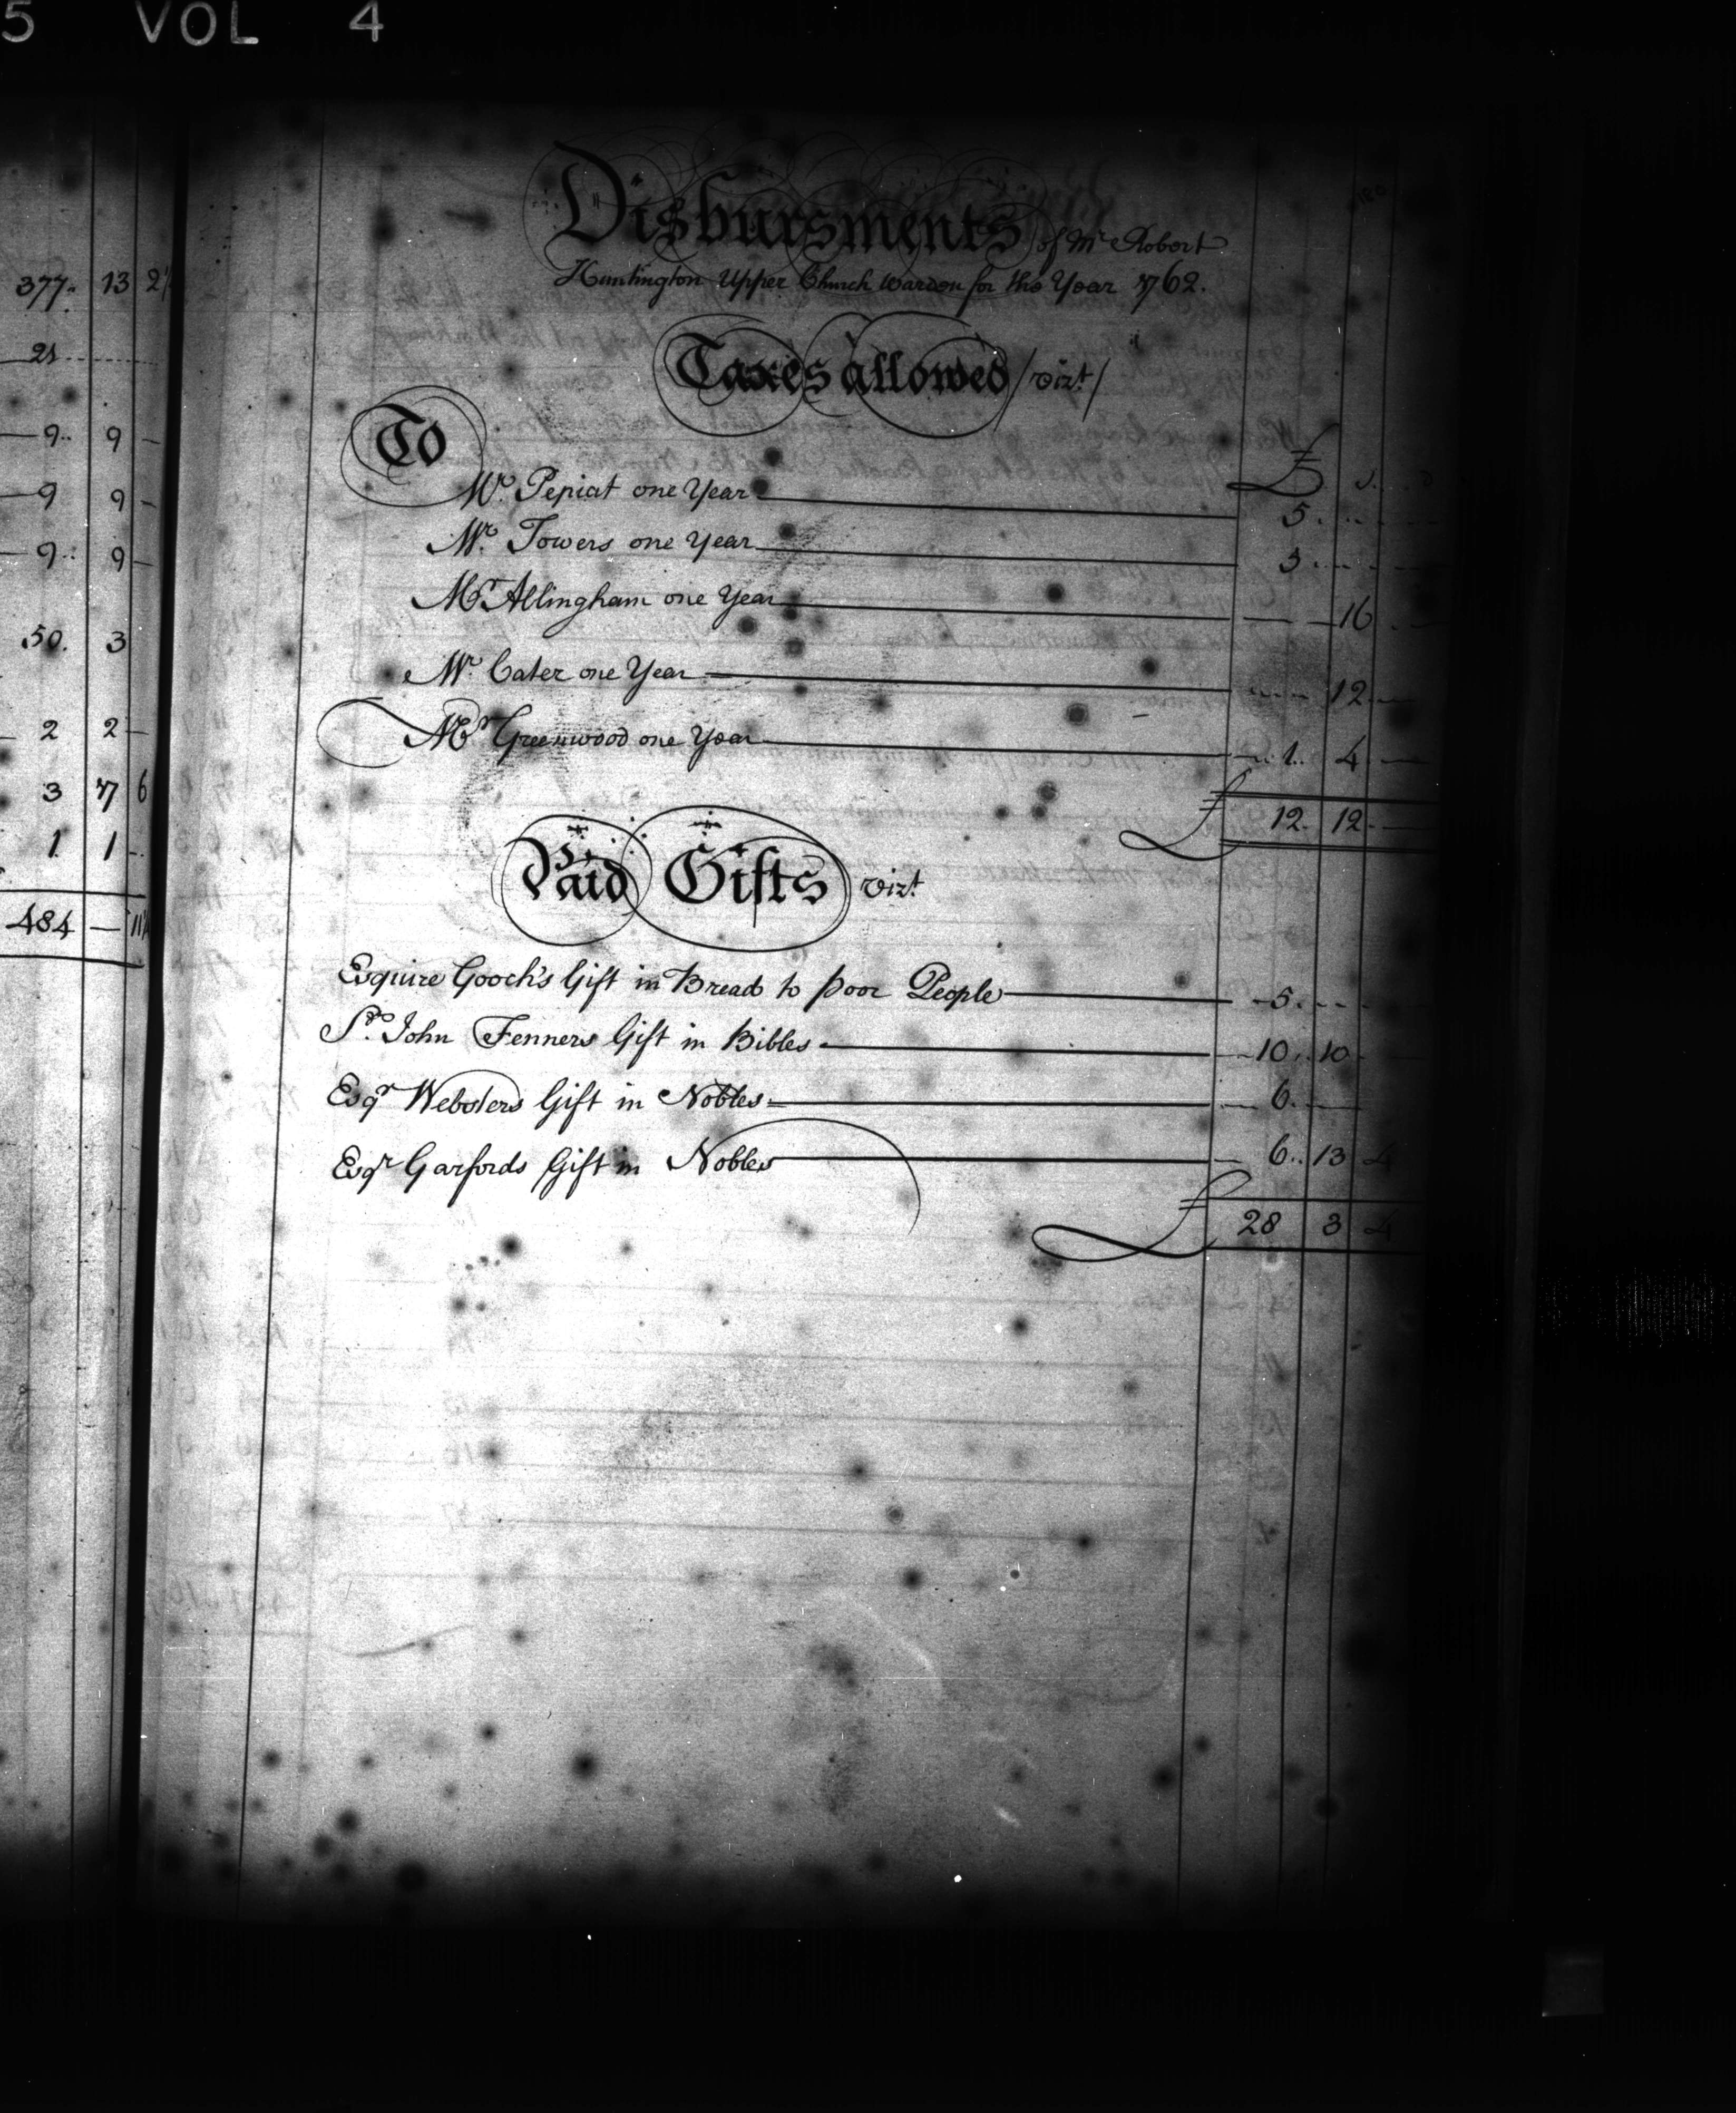 5 VOL 4
377.. 13 2½
21
9.. 9 —
9 9 —
9.. 9 —
50. 3
2 2 —
3 7 6
1 1 -
484 — 11½
Disbursments of Mr Robert
Huntington Upper Church Warden for the Year 1762.
Taxes allowed / vizt /
£ s d
To
Mr. Pepiat one Year 5
Mr. Towers one Year 3
Mr Allingham one Year 16
Mr. Cater one Year 12
Mr Greenwood one Year 1.. 4
£ 12. 12
Paid Gifts vizt
Esquire Gooch's Gift in Bread to poor People 5
Sr. John Fenners Gift in Bibles 10.. 10
Esqr Websters Gift in Nobles 6
Esqr Garfords Gift in Nobles 6.. 13 4
£ 28 3 4